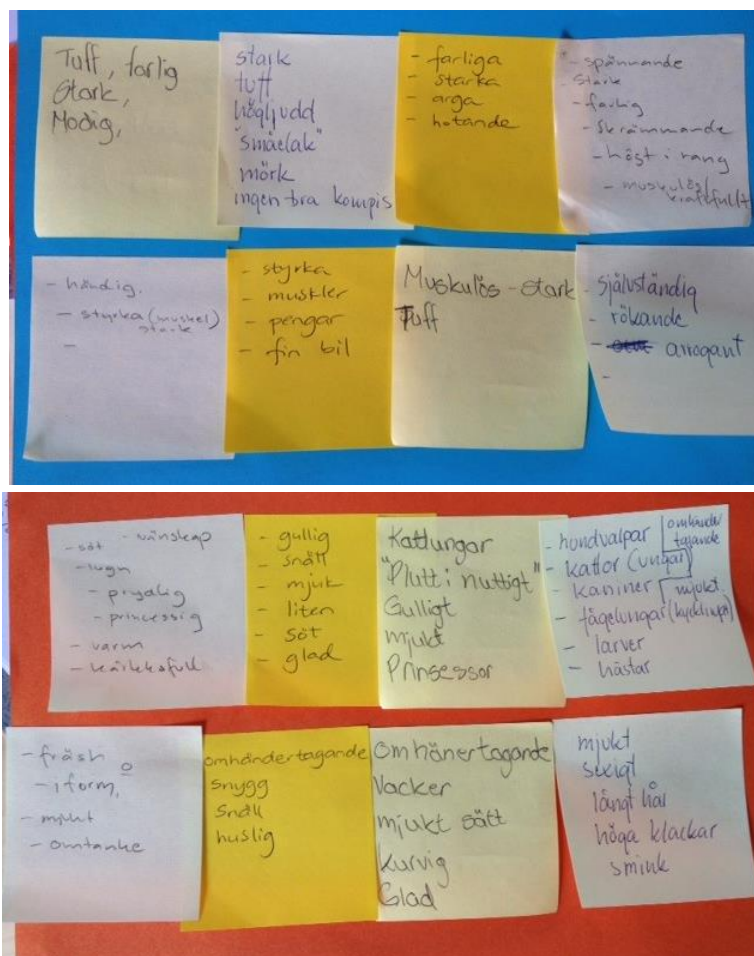 Tuff, farlig
Stark,
Modig,
stark
tuff
högljudd
"småelak"
mörk
ingen bra kompis
- farliga
- starka
- arga
- hotande
- spännande
- stark
- farlig
- skrämmande
- högst i rang
- muskulös/
kraftfullt
- händig.
- styrka (muskel)
stark
-
- styrka
- muskler
- pengar
- fin bil
Muskulös - stark
Tuff
- självständig
- rökande
- arrogant
-
- söt - vänskap
- lugn
- prydlig
- princessig
- varm
- kärleksfull
- gullig
- snäll
- mjuk
- liten
- söt
- glad
Kattungar
"Plutt i nuttigt"
Gulligt
mjukt
Prinsessor
- hundvalpar omhänder
tagande
- kattor (ungar)
- kaniner mjukt
- fågelungar (kycklingar)
- larver
- hästar
- fräsh
- i form,
- mjukt
- omtanke
omhändertagande
snygg
snäll
huslig
omhänertagande
Vacker
mjukt sätt
kurvig
Glad
mjukt
sexigt
långt hår
höga klackar
smink